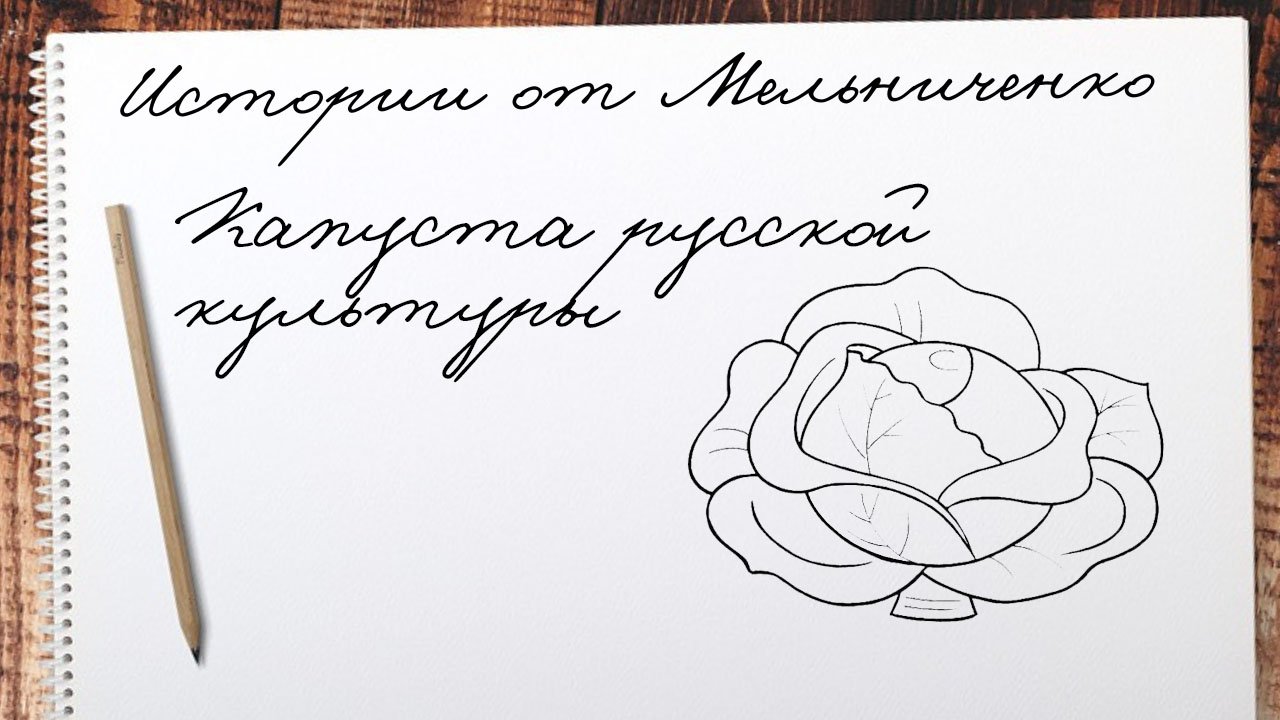 Истории от Мельниченко
Капуста русской
культуры